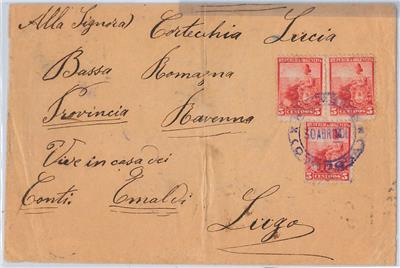 Alla Signora Cortecchia Lucia
Bassa Romagna
Provincia Ravenna
Vive in casa dei
Conti Emaldi
Lugo
REPUBLICA ARGENTINA REPUBLICA ARGENTINA
5 CENTAVOS 5 5 CENTAVOS 5
30 ABR
5 CENTAVOS 5